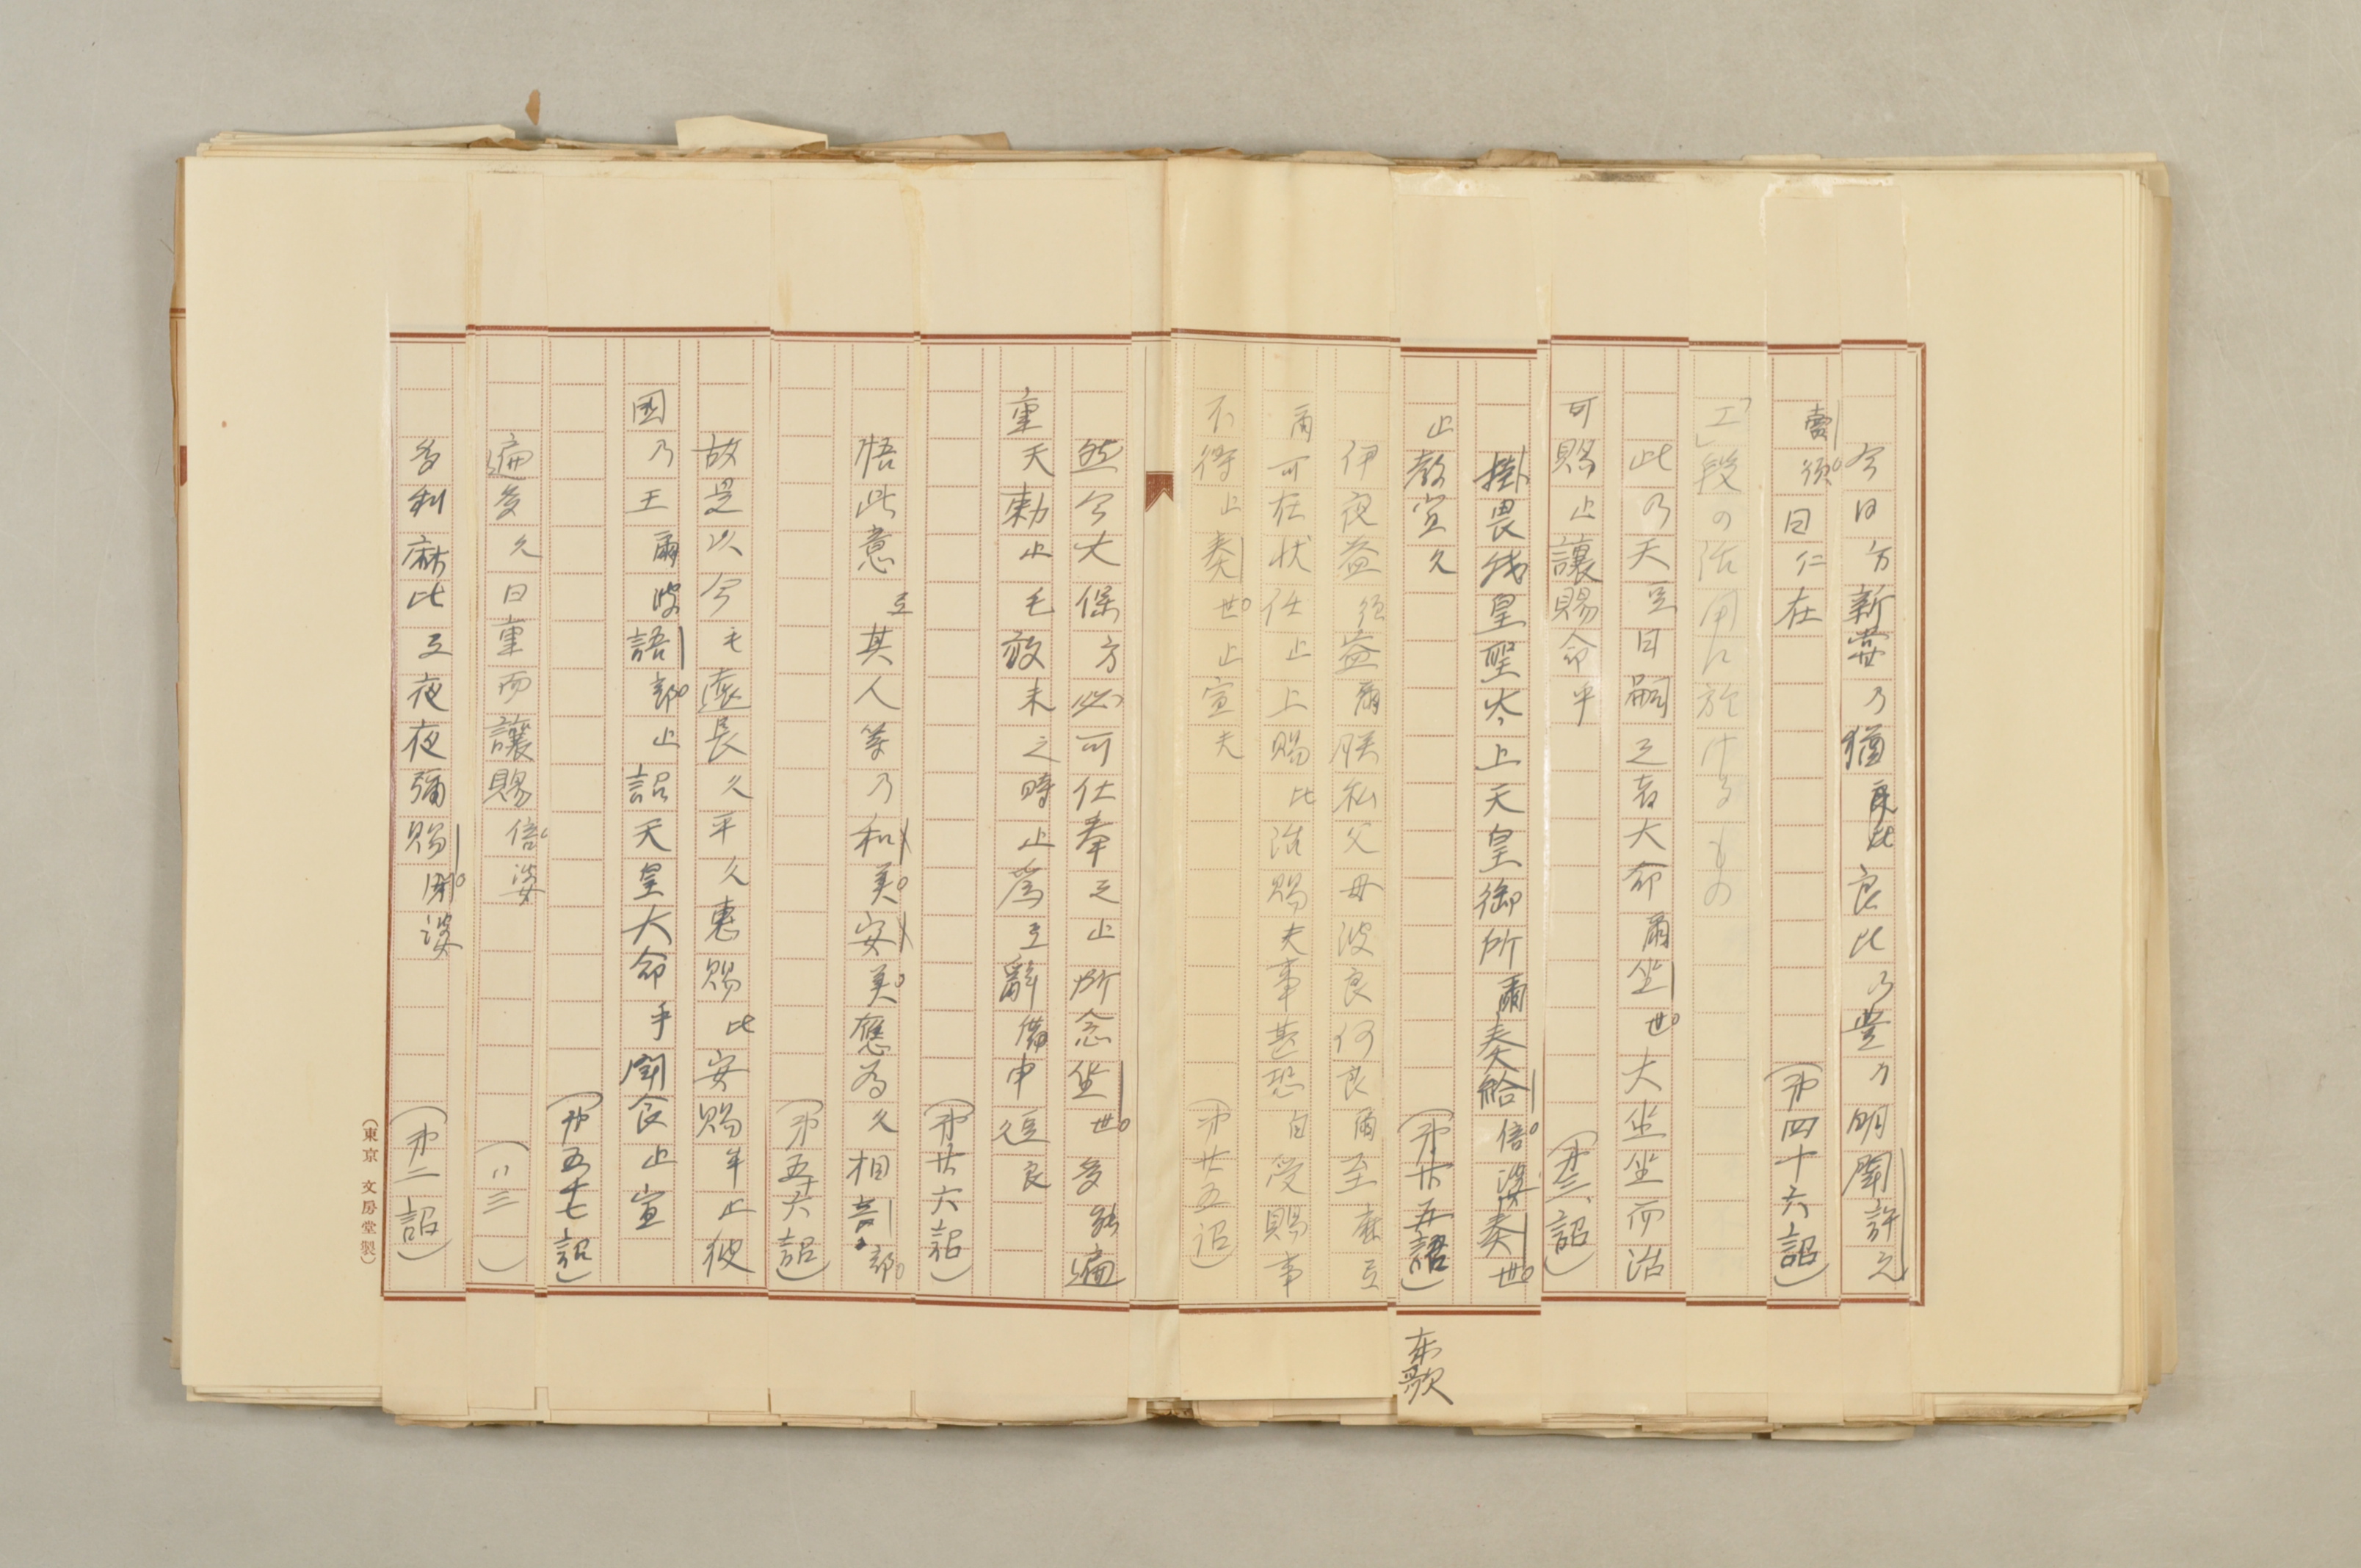 今日方新嘗乃猶良比乃豊乃明聞許之
賣須日仁在（第四十六詔）
「エ」段の活用に於けるもの
此乃天豆日嗣之者大命爾坐世大坐坐而治
可賜止讓賜命乎（第三詔）
掛畏我皇聖太上天皇御所爾奏給倍婆奏世
止教宣久（第廿五詔）
東歌
伊夜益須益爾朕私父母波良何良爾至麻弖
爾可在状任止上賜比治賜夫事甚恐自受賜事
不得止奏世止宣夫（第廿五詔）
然今大保方必可仕奉之止所念坐世多能遍
重天勅止毛敢未之時止為弖辭備申豆良
（第廿六詔）
悟此意弖其人等乃和美安美應為久相言部
（第五十六詔）
故是以今毛遠長久平久惠賜比安賜牟止彼
国乃王爾波語部止詔天皇大命乎聞食止宣
（第五十七詔）
遍多久日重而讓賜倍婆（〃三）
多利麻比弖夜夜弥賜閇婆（第二詔）
（東京 文房堂製）